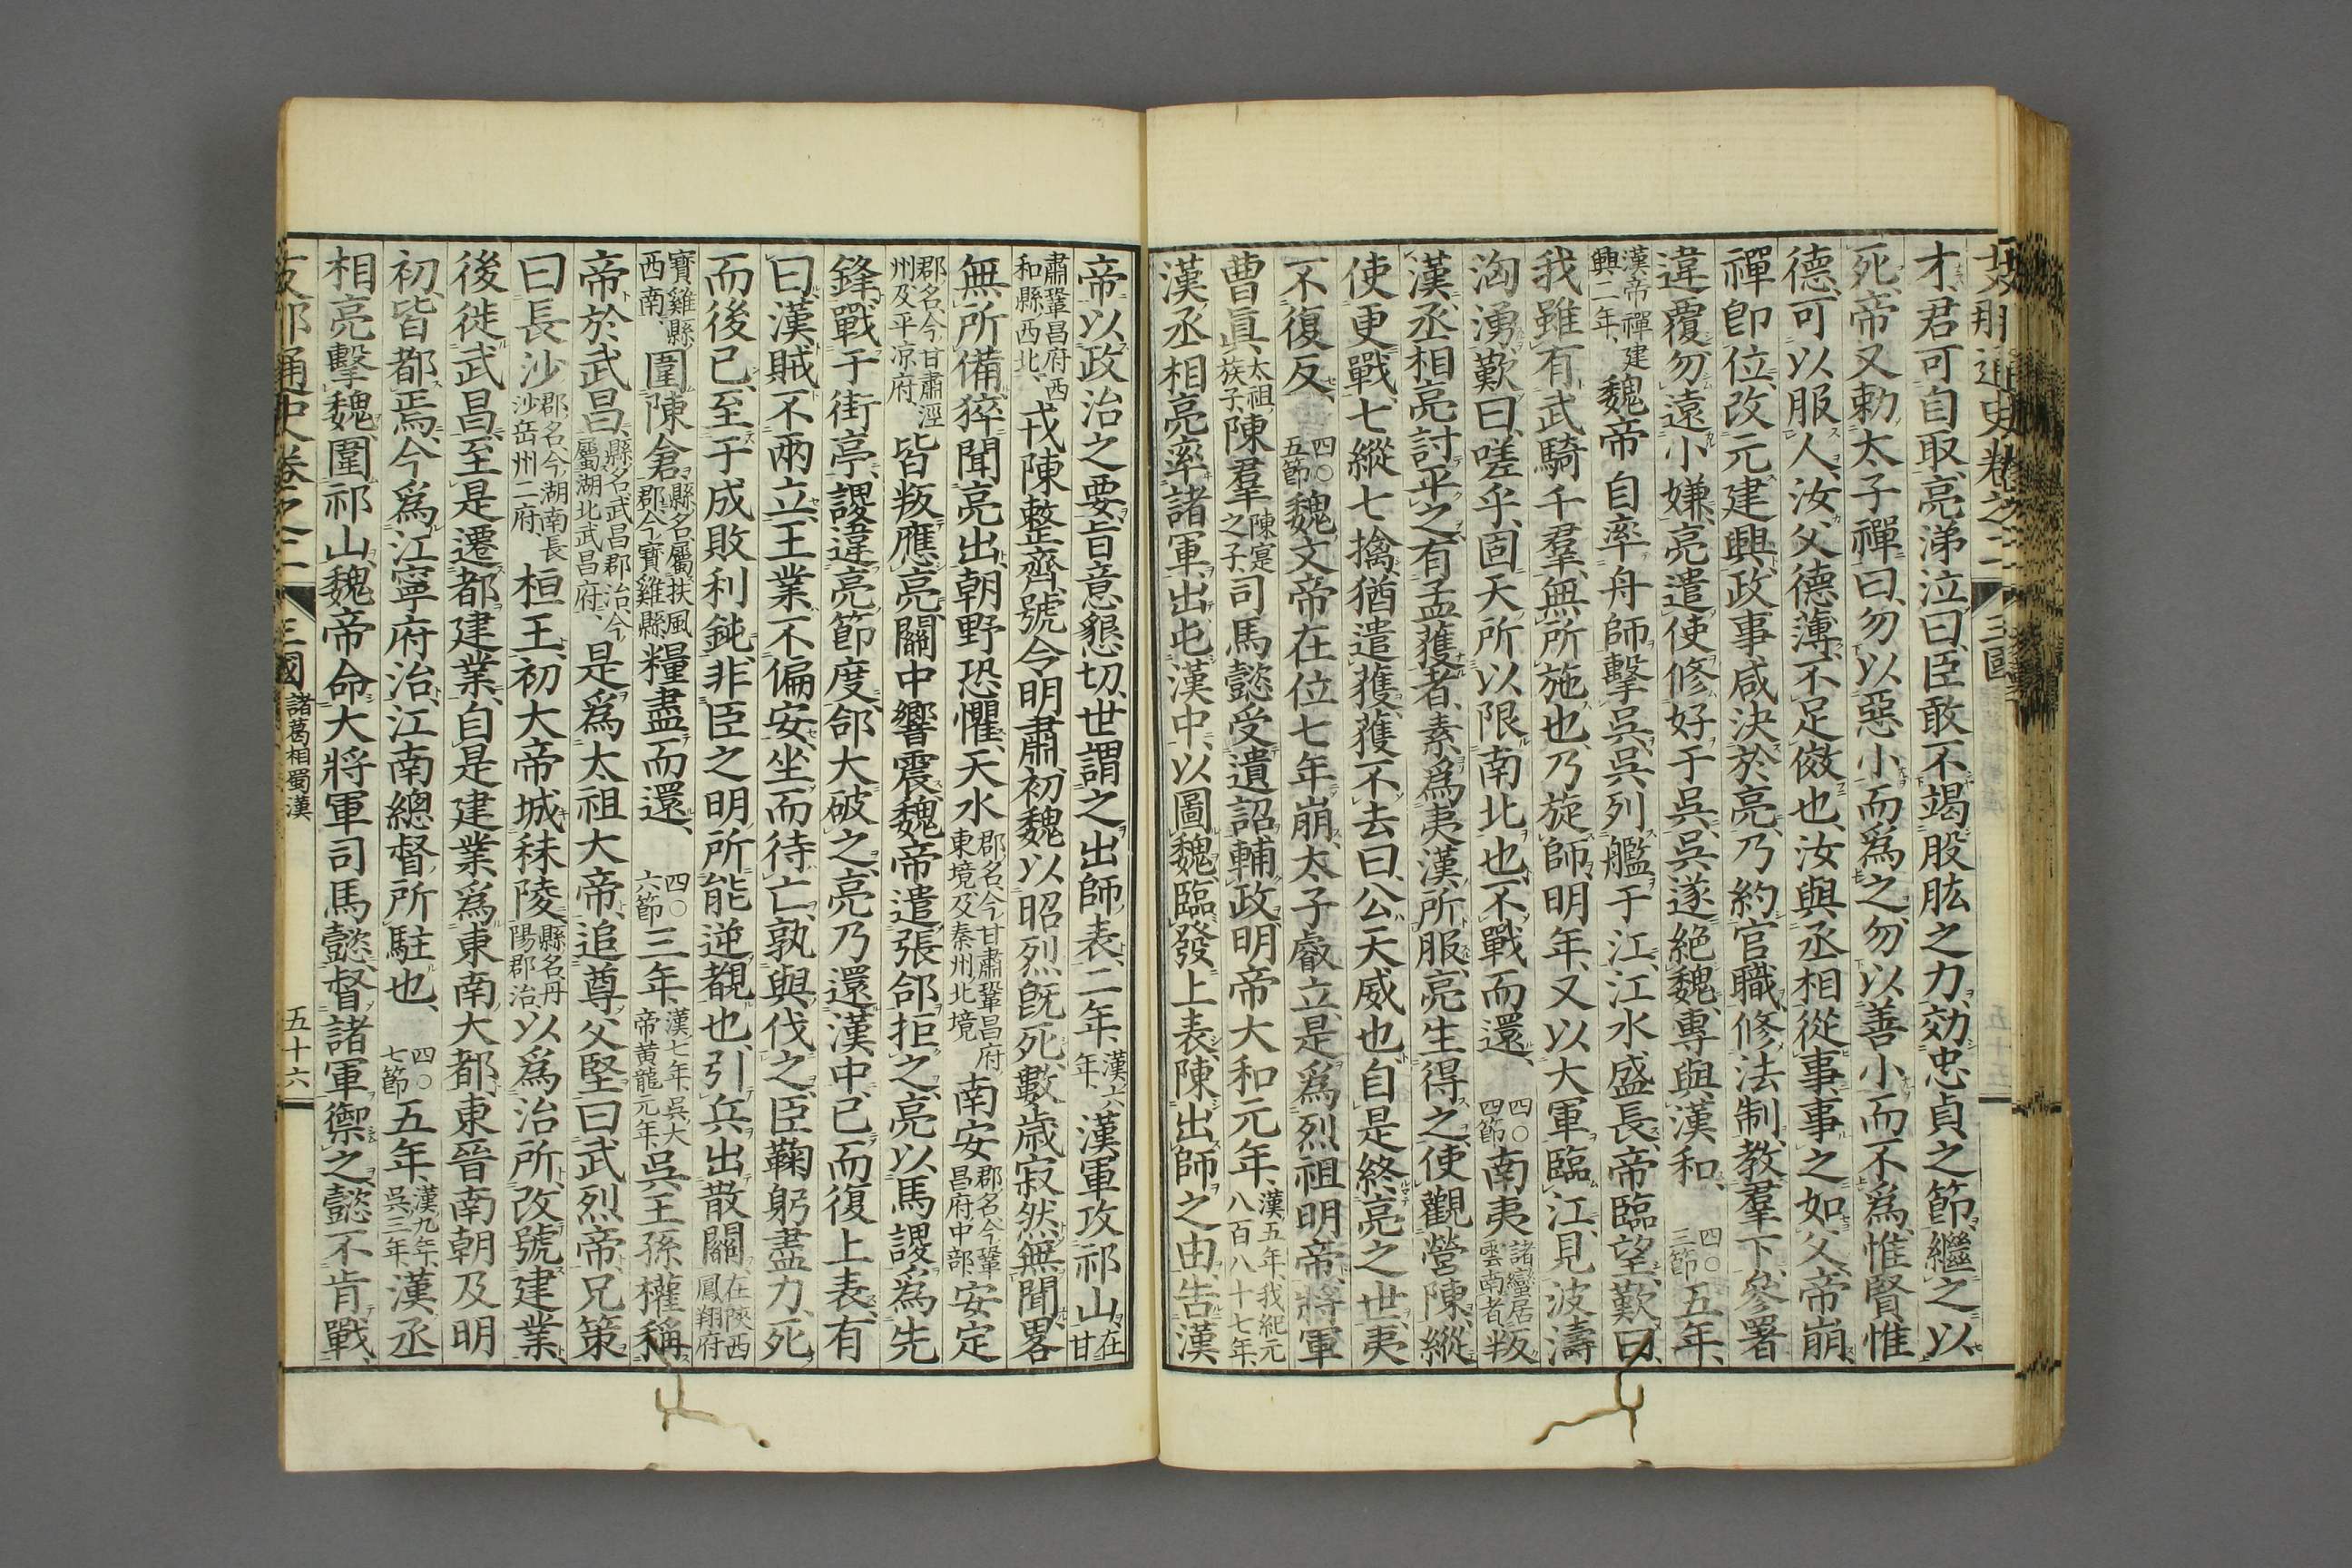 支那通史卷之二 三國
才、君可自取、亮涕泣曰、臣敢不竭股肱之力、効忠貞之節、繼之以
死、帝又勅太子禪曰、勿以惡小而爲之、勿以善小而不爲、惟賢惟
德、可以服人、汝父德薄、不足傚也、汝與丞相從事、事之如父、帝崩、
禪卽位、改元建興、政事咸決於亮、乃約官職、修法制、教羣下、參署
違覆、勿遠小嫌、亮遣使修好于吳、吳遂絶魏、專與漢和、四〇三節五年、
漢帝禪建興二年、魏帝自率舟師擊吳、吳列艦于江、江水盛長、帝臨望、歎曰、
我雖有武騎千羣、無所施也、乃旋師、明年、又以大軍臨江、見波濤
洶湧、歎曰、嗟乎、固天所以限南北也、不戰而還、四〇四節南夷諸蠻居雲南者、叛
漢、丞相亮討平之、有孟獲者、素爲夷漢所服、亮生得之、使觀營陳、縱
使更戰、七縱七擒、猶遣獲、獲不去曰、公天威也、自是終亮之世、夷
不復反、四〇五節魏文帝在位七年崩、太子叡立、是爲烈祖明帝、將軍
曹眞、太祖族子、陳羣、陳寔之子、司馬懿受遺詔輔政、明帝大和元年、漢五年、我紀元八百八十七年、
漢丞相亮率諸軍、出屯漢中、以圖魏、臨發上表、陳出師之由、告漢
帝以政治之要、旨意懇切、世謂之出師表、二年、漢六年、漢軍攻祁山、在甘
肅鞏昌府西和縣西北、戎陳整齊、號令明肅、初魏以昭烈既死、數歲寂然無聞、畧
無所備、猝聞亮出、朝野恐懼、天水郡名、今甘肅鞏昌府東境及秦州北境、南安郡名、今鞏昌府中部、安定
郡名、今甘肅涇州及平凉府、皆叛應亮、關中響震、魏帝遣張郃拒之、亮以馬謖爲先
鋒、戰于街亭、謖違亮節度、郃大破之、亮乃還漢中、已而復上表、有
曰、漢賊不兩立、王業不偏安、坐而待亡、孰與伐之、臣鞠躬盡力、死
而後已、至于成敗利鈍、非臣之明所能逆覩也、引兵出散關、在陝西鳳翔府
寶雞縣西南、圍陳倉、縣名、屬扶風郡、今寶雞縣、糧盡而還、四〇六節三年、漢七年、吳大帝黃龍元年、吳王孫權稱
帝於武昌、縣名、武昌郡治、今屬湖北武昌府、是爲太祖大帝、追尊父堅曰武烈帝、兄策
曰長沙郡名、今湖南長沙岳州二府、桓王、初大帝城秣陵、縣名、丹陽郡治、以爲治所、改號建業、
後徙武昌、至是遷都建業、自是建業爲東南大都、東晉南朝及明
初、皆都焉、今爲江寧府治、江南總督所駐也、四〇七節五年、漢九年、吳三年、漢丞
相亮擊魏、圍祁山、魏帝命大將軍司馬懿、督諸軍禦之、懿不肯戰、
支那通史卷之二 三國 諸葛相蜀漢 五十六